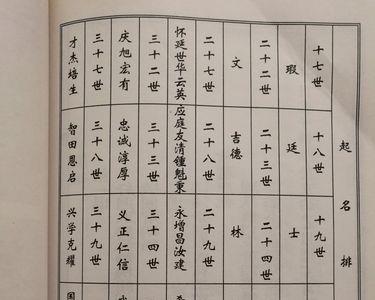 起名排
十七世
十八世
十九世
瑕
廷
士
二十二世
二十三世
二十四世
文
吉德
林
二十七世
二十八世
二十九世
怀廷世华云英
应庭友清鍾魁秉
永增昌汝建
三十二世
三十三世
三十四世
庆旭宏有
忠诚淳厚
义正仁信
三十七世
三十八世
三十九世
才杰培生
智田恩启
兴学克耀